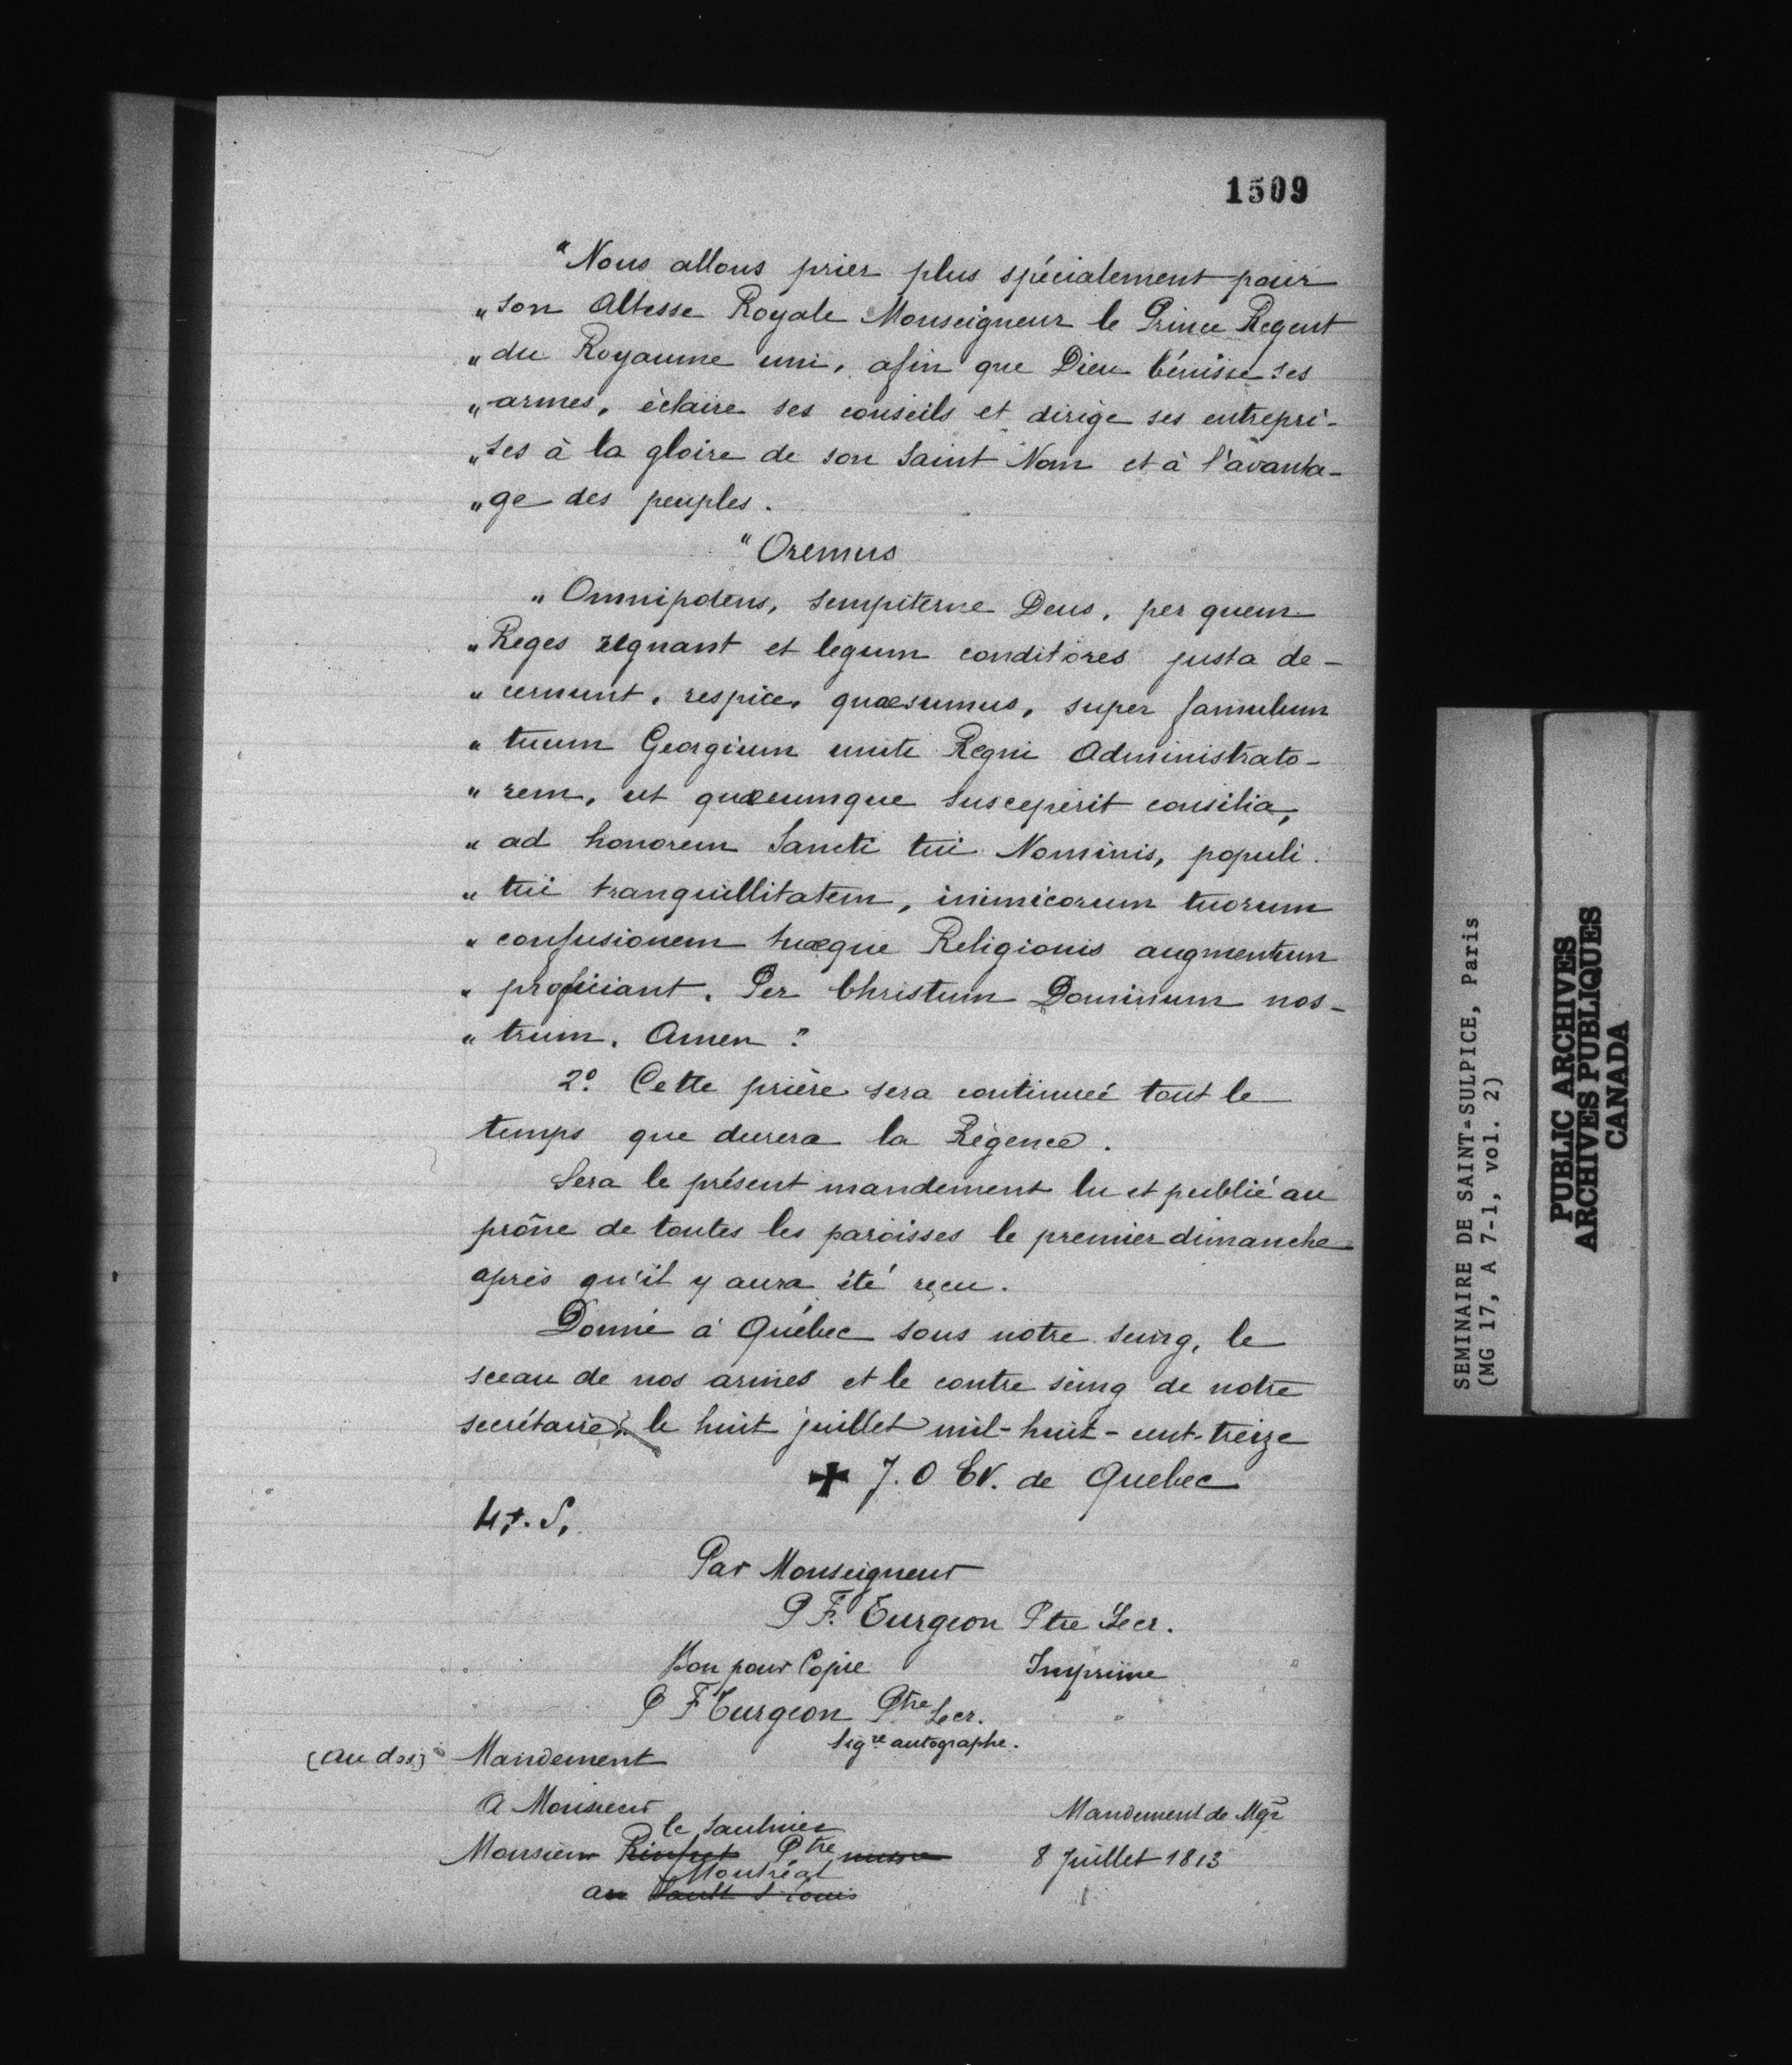 1509
"Nous allons prier plus spécialement pour
"son Altesse Royale Monseigneur le Prince Regent
"du Royaume uni, afin que Dieu bénisse ses
"armes, éclaire ses conseils et dirige ses entrepri-
"ses à la gloire de son Saint Nom et à l'avanta-
"ge des peuples.
"Oremus
"Omnipotens, sempiterne Deus, per quem
"Reges regnant et legum conditores justa de-
"cernunt, respice, quæsumus, super famulum
"tuum Georgium uniti Regni Administrato-
"rem, ut quæcumque susceperit consilia,
"ad honorem Sancti tui Nominis, populi
"tui tranquillitatem, inimicorum tuorum
"confusionem tuæque Religionis augmentum
"proficiant. Per Christum Dominum nos-
"trum. Amen"
2º Cette prière sera continuée tout le
temps que durera la Régence.
Sera le présent mandement lu et publié au
prône de toutes les paroisses le premier dimanche
après qu'il y aura été reçu.
Donné à Québec sous notre seing, le
sceau de nos armes et le contre seing de notre
secrétaire, le huit juillet mil-huit-cent-treize
✠ J. O Ev. de Quebec
L. +. S.
Par Monseigneur
P F. Turgeon Ptre Secr.
Bon pour Copie Imprime
P F Turgeon Ptre Secr.
Sigre autographe.
(au dos) Mandement
A Monsieur Mandement de Mgr
le Saulnier
Monsieur Rinfret Ptre misse 8 Juillet 1813
Montréal
au Sault S Louis
SEMINAIRE DE SAINT-SULPICE, Paris
(MG 17, A 7-1, vol. 2)
PUBLIC ARCHIVES
ARCHIVES PUBLIQUES
CANADA